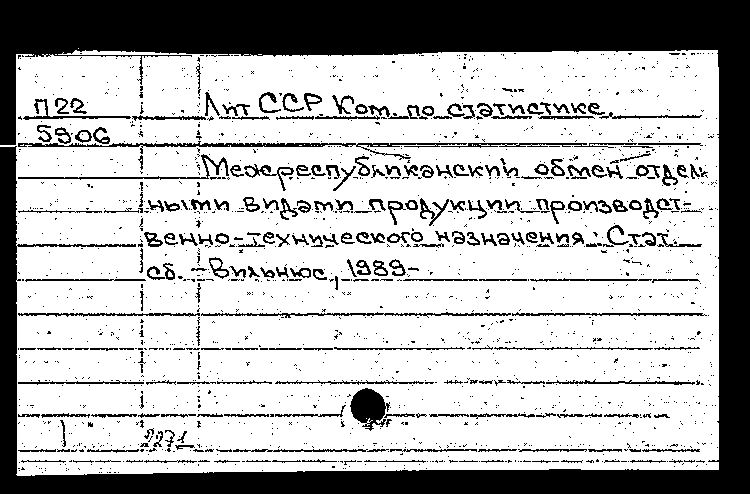 П22
Лит ССР. Ком. по статистике.
5906
Межреспубликанский обмен отдель-
ными видами продукции производст-
венно-технического назначения: Стат.
сб. - Вильнюс, 1989-
2271